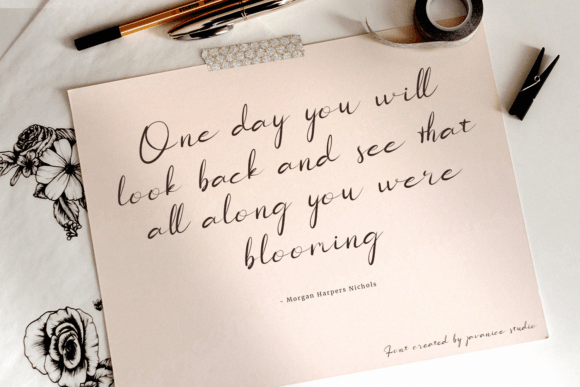 One day you will
look back and see that
all along you were
blooming
- Morgan Harpers Nichols
Font created by javanice studio